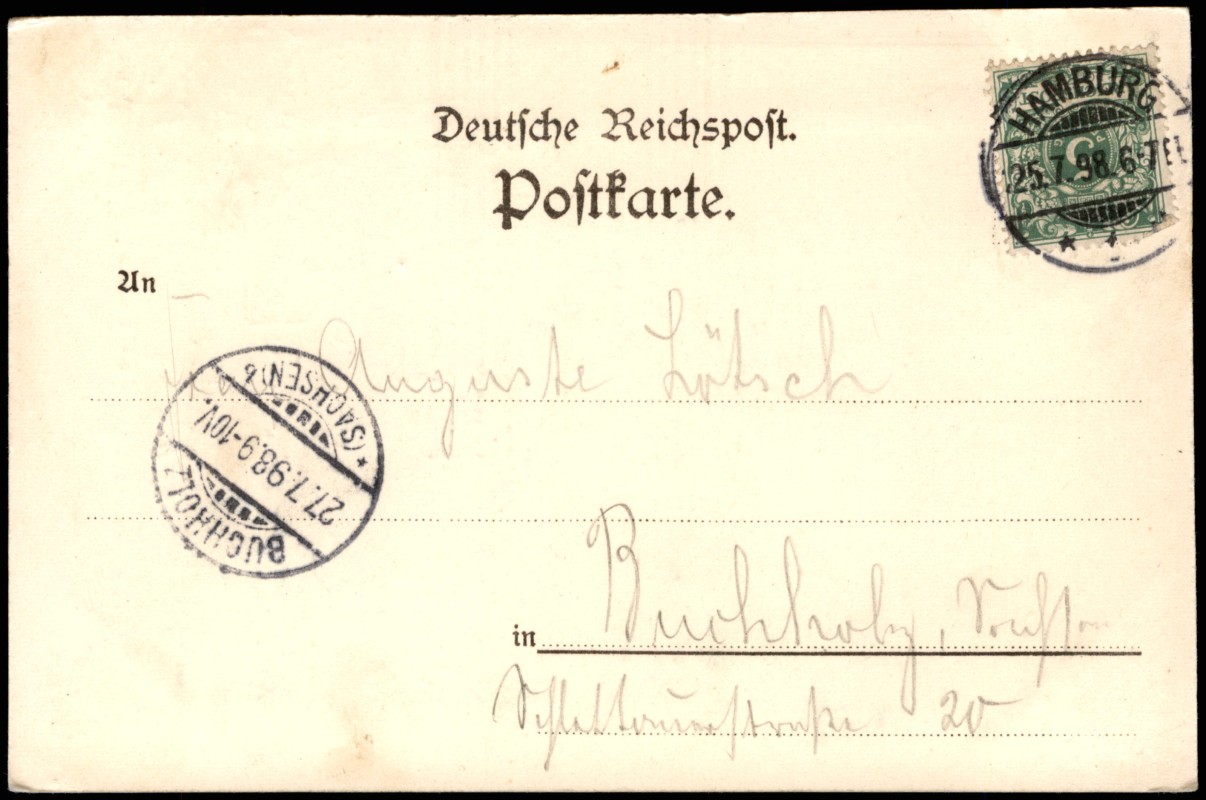 Deutsche Reichspost.
Postkarte.
HAMBURG
25.7.98.6-7
5
An
Auguste Lötsch
(SACHSEN)
27.7.98.9-10V.
BUCHHOLZ
in Buchholz, Sachsen
Schlettauerstraße 20